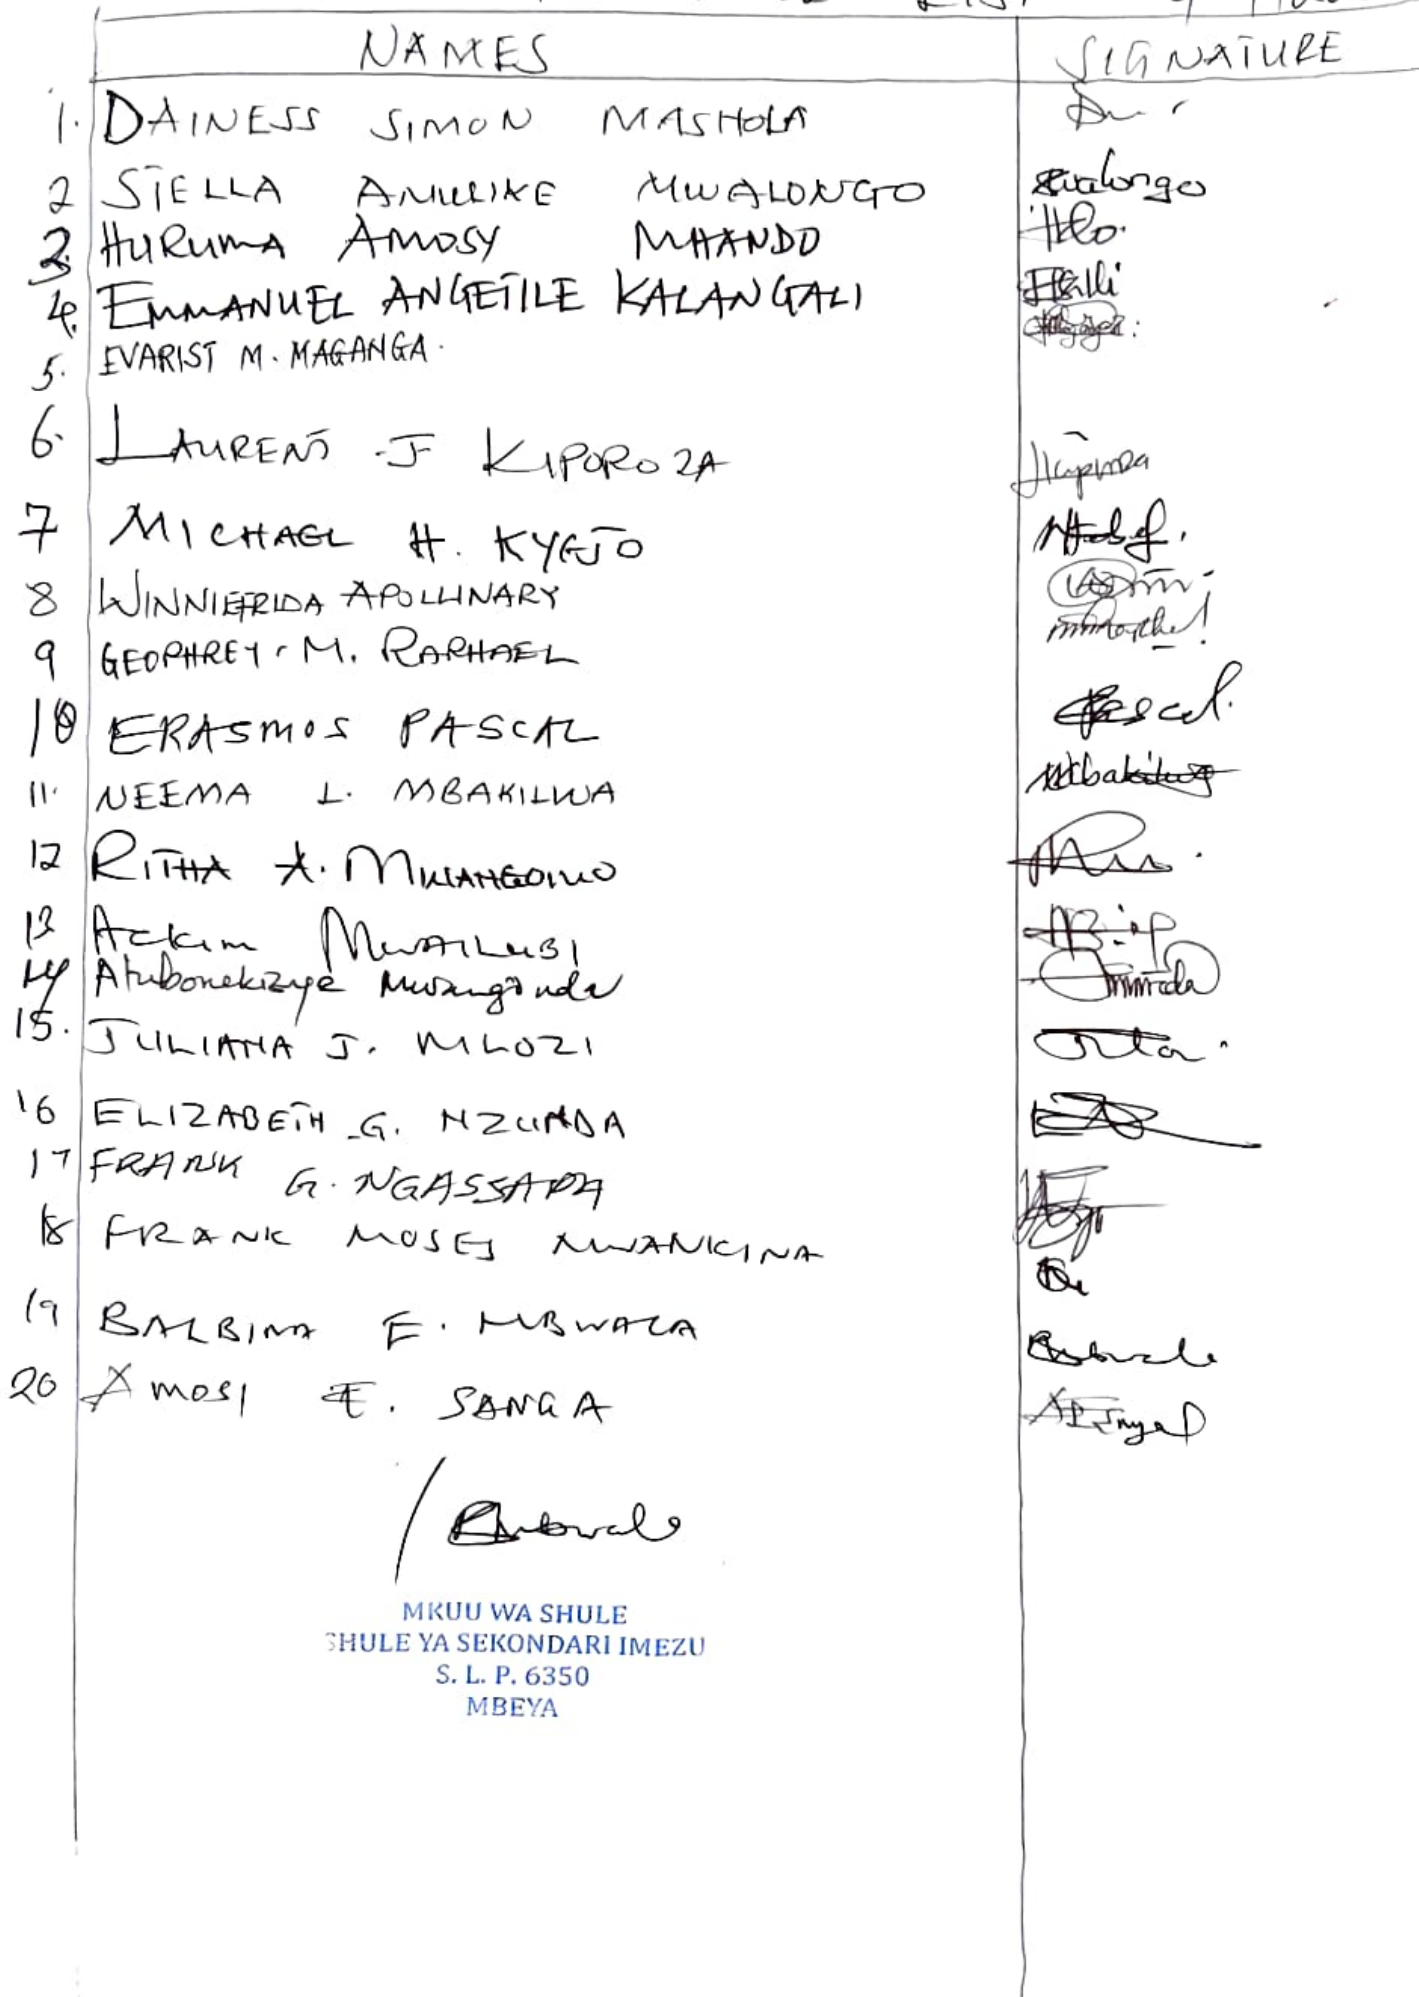 NAMES SIGNATURE
1. DAINESS SIMON MASHOLA
2 STELLA ANULIKE MWALONGO
3. HURUMA AMOSY MHANDO
4. EMMANUEL ANGETILE KALANGALI
5. EVARIST M. MAGANGA.
6. LAURENT J KIPOROZA
7 MICHAEL H. KYEJO
8 WINNIEFRIDA APOLLINARY
9 GEOPHREY. M. RAPHAEL
10 ERASMOS PASCAL Pascal.
11. NEEMA L. MBAKILWA
12 RITHA A.
13 Ackim MWAILUBI
14 Atubonekizye Mwangonda
15. JULIANA J. MLOZI
16 ELIZABETH G. NZUNDA
17 FRANK G. NGASSAPA
18 FRANK MOSES MWANKINA
19 BALBINA E. MBWALA
20 AMOSI E. SANGA
MKUU WA SHULE
SHULE YA SEKONDARI IMEZU
S. L. P. 6350
MBEYA